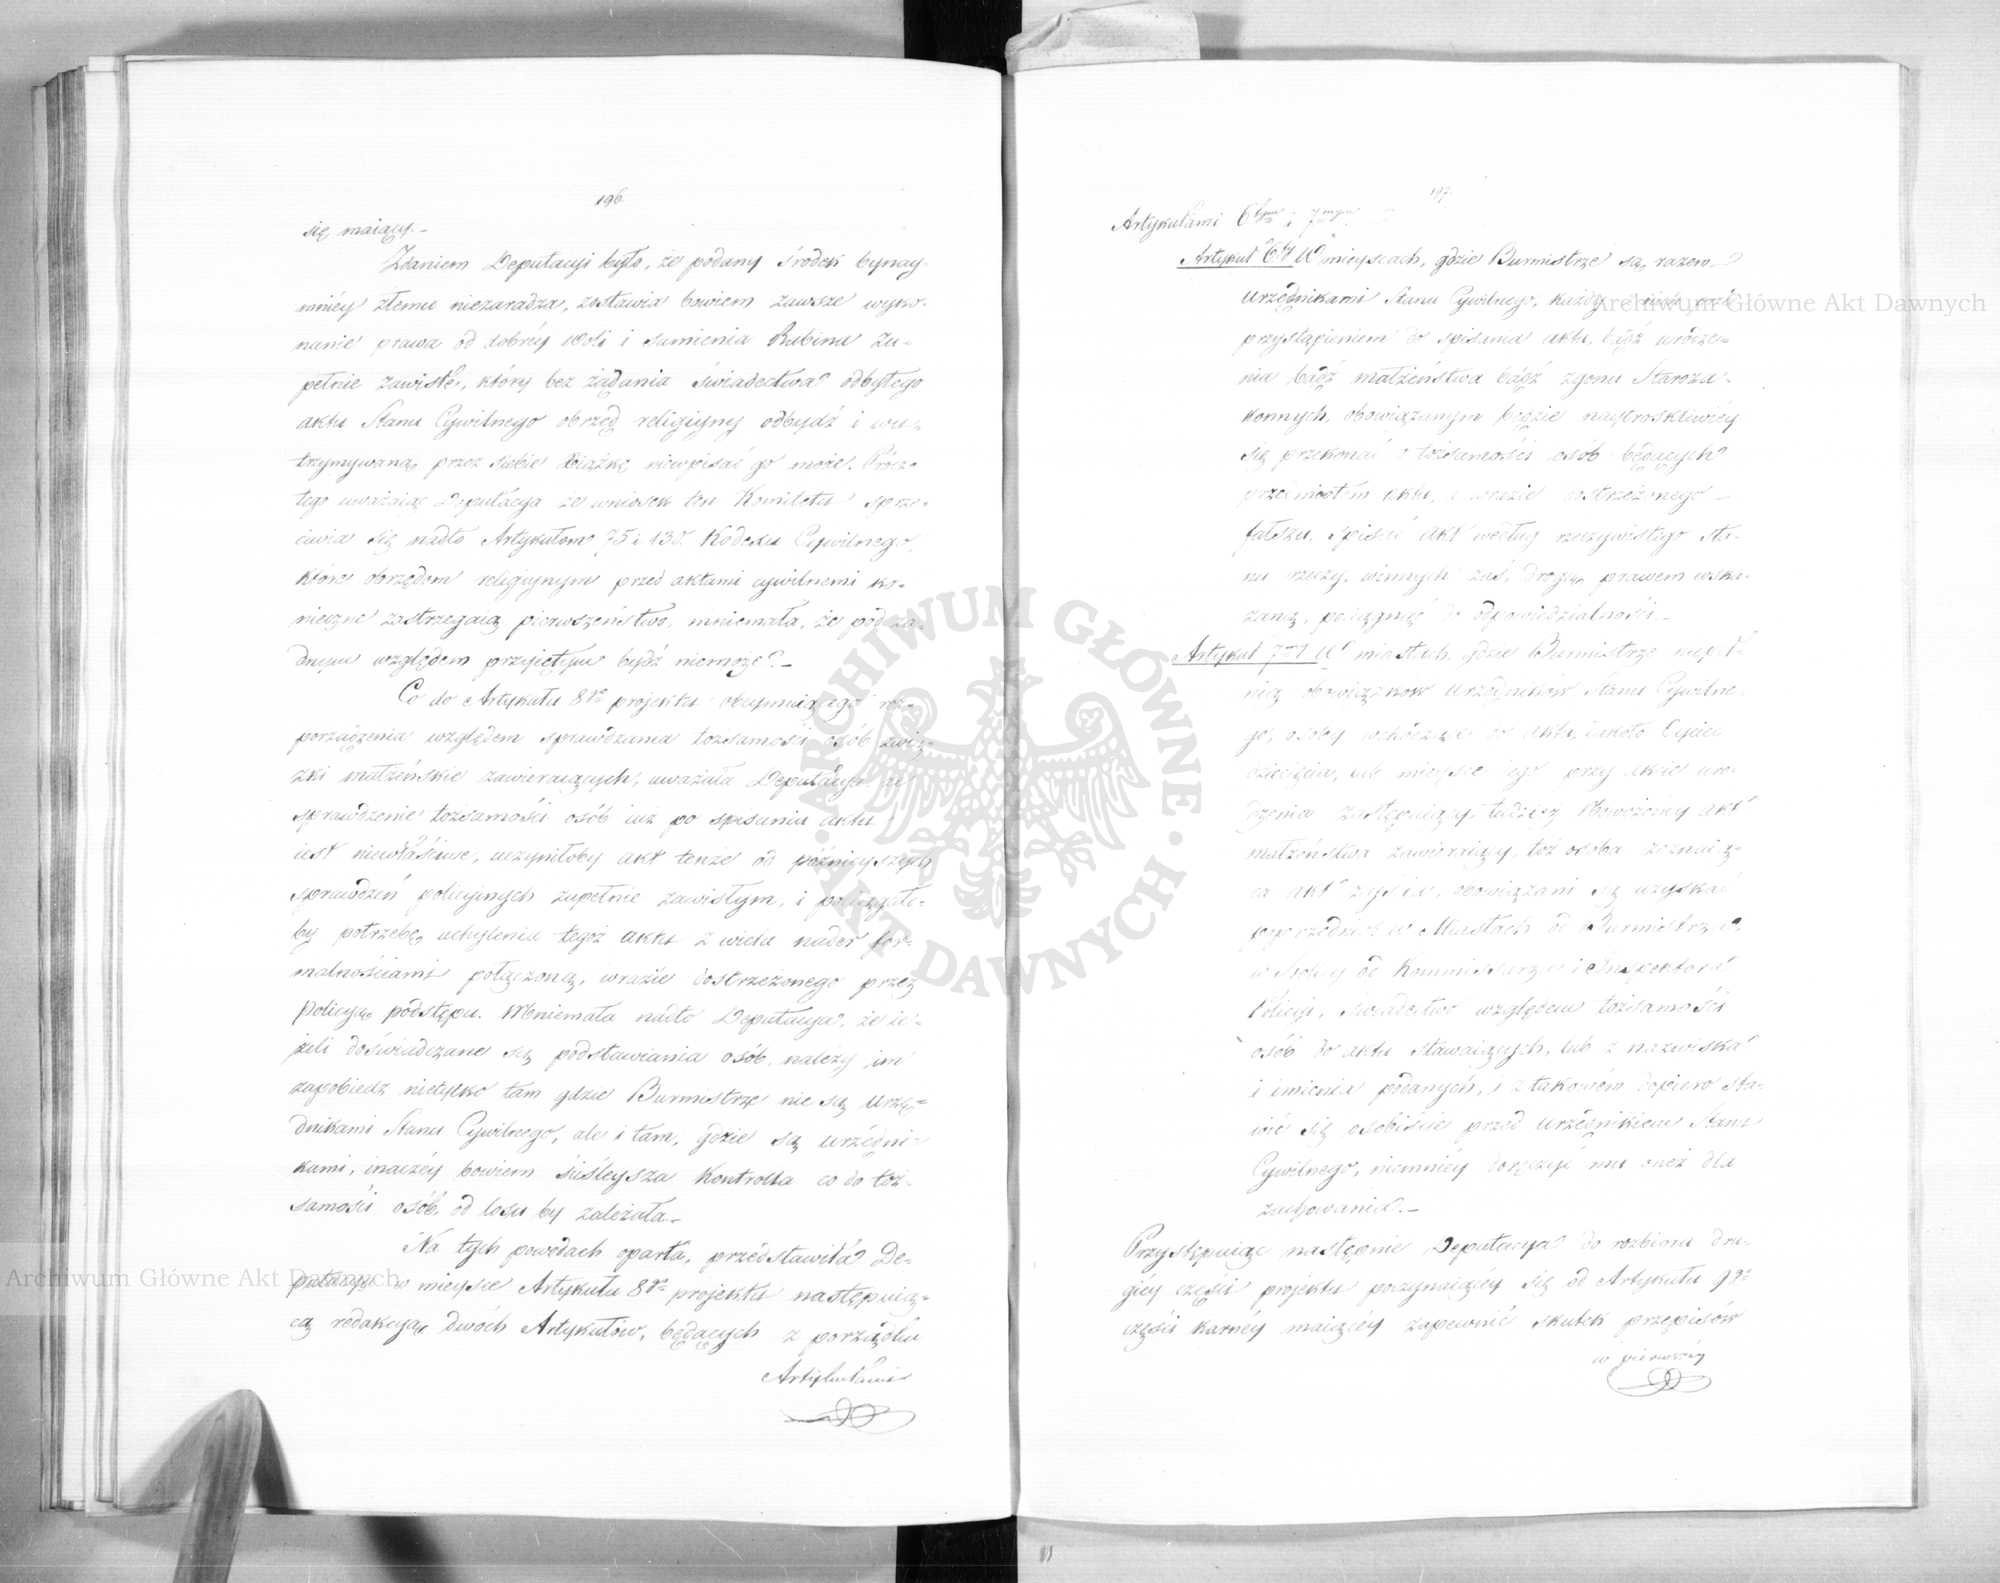 196
się maiący.–
Zdaniem Deputacyi było, że podany środek bynay-
mniéy złemu niezaradza, zostawia bowiem zawsze wyko-
nanie prawa od dobréy woli i sumienia Rabina zu-
pełnie zawisłe, który bez żądania świadectwa odbytego
aktu Stanu Cywilnego obrzęd religiyny odbydź i w u-
trzymywaną przez siebie Xiążkę niewpisać go może. Prócz
tego uważaiąc Deputacya że wniosek ten Komitetu sprze-
ciwia się nadto Artykułom 75 i 130. Kodexu Cywilnego,
które obrzędom religiynym przed aktami cywilnemi ko-
nieczne zastrzegaią pierwszeństwo, mniemała, że pod ża-
dnym względem przyiętym bydź niemoże.–
Co do Artykułu 8go projektu obeymuiącego roz-
porządzenia względem sprawdzania tożsamości osób zwią-
zki małżeńskie zawieraiących, uważała Deputacya, że
sprawdzenie tożsamości osób iuż po spisaniu aktu
iest niewłaściwe, uczyniłoby akt tenże od późnieyszych
sprawdzeń policyinych zupełnie zawisłym, i pociągało-
by potrzebę uchylenia tegoż aktu z wielu nader for-
malnościami połączoną, w razie dostrzeżonego przez
Policyą podstępu. Mniemała nadto Deputacya, że ie-
żeli doświadczane są podstawiania osób, należy im
zapobiedz nietylko tam gdzie Burmistrze nie są Urzę-
dnikami Stanu Cywilnego, ale i tam, gdzie są urzędni-
kami, inaczéy bowiem ściśleysza kontrolla co do toż-
samości osób, od losu by zależała.–
Na tych powodach oparta, przedstawiła De-
putacya w mieysce Artykułu 8go projektu następuią-
cą redakcyą dwóch Artykułów, będących z porządku
Artykułami
197.
Artykułami 6tym i 7mym
Artykuł 6ty W mieyscach, gdzie Burmistrze są razem
Urzędnikami Stanu Cywilnego, każdy z nich przed
przystąpieniem do spisania aktu, bądź urodze-
nia bądź małżeństwa bądź zgonu Staroza-
konnych, obowiązanym będzie naytroskliwiéy
się przekonać o tożsamości osób będących
przedmiotem aktu, a w razie dostrzeżonego
fałszu, spisać akt według rzeczywistego sta-
nu rzeczy, winnych zaś, drogą prawem wska-
zaną, pociągnąć do odpowiedzialności.–
Artykuł 7my W miastach, gdzie Burmistrze niepeł-
nią obowiązków Urzędników Stanu Cywilne-
go, osoby wchodzące do aktu, iakoto Oyciec
dziecięcia, lub mieysce iego przy akcie uro-
dzenia zastępuiący, tudzież Nowożeńcy akt
małżeństwa zawieraiący, toż osoba zeznaią-
ca akt zeyścia, obowiązani są uzyskać
poprzednio: w Miastach od Burmistrza,
w Stolicy od Kommissarza i Inspektora
Policyi, świadectwo względem tożsamości
osób do aktu stawaiących, lub z nazwiska
i imienia podanych, i z takowém dopiero sta-
wić się osobiście przed Urzędnikiem Stanu
Cywilnego, niemniéy doręczyć mu oneż dla
zachowania.–
Przystępuiąc następnie Deputacya do rozbioru dru-
giéy części projektu poczynaiącéy się od Artykułu 9go
części karnéy maiącéy zapewnić skutek przepisów
w pierwszéy
Archiwum Główne Akt Dawnych
Archiwum Główne Akt Dawnych
ARCHIWUM GŁÓWNE · AKT DAWNYCH ·